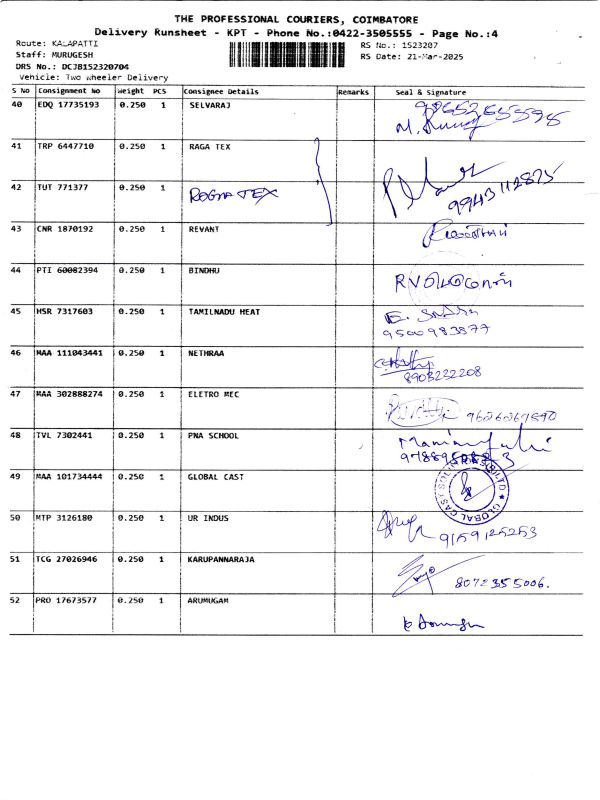 THE PROFESSIONAL COURIERS, COIMBATORE
Delivery Runsheet - KPT - Phone No.:0422-3505555 - Page No.:4
Route: KALAPATTI
RS No.: 1523207
Staff: MURUGESH
RS Date: 21-Mar-2025
DRS No.: DCJB152320704
Vehicle: Two Wheeler Delivery
S No Consignment No Weight PCS Consignee Details Remarks Seal & Signature
40 EDQ 17735193 0.250 1 SELVARAJ
41 TRP 6447710 0.250 1 RAGA TEX
42 TUT 771377 0.250 1 ROGMA TEX 9943112875
43 CNR 1870192 0.250 1 REVANT
44 PTI 60082394 0.250 1 BINDHU
45 HSR 7317603 0.250 1 TAMILNADU HEAT
9500983877
46 MAA 111043441 0.250 1 NETHRAA
8903232208
47 MAA 302888274 0.250 1 ELETRO MEC 9626269890
48 TVL 7302441 0.250 1 PNA SCHOOL
49 MAA 101734444 0.250 1 GLOBAL CAST
50 MTP 3126180 0.250 1 UR INDUS
9159125253
51 TCG 27026946 0.250 1 KARUPPANNARAJA
8072355006.
52 PRO 17673577 0.250 1 ARUMUGAM